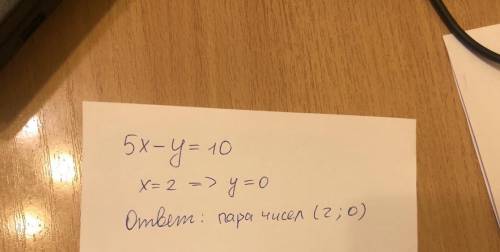 5x-y=10
x=2 => y=0
Ответ: пара чисел (2; 0)